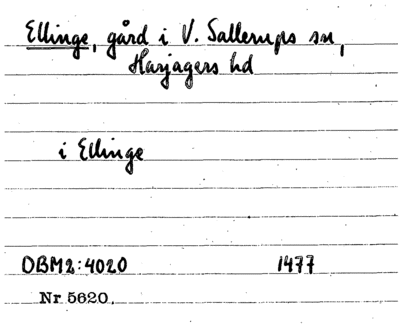 Ellinge, gård i V. Sallerups sn,
Harjagers hd
i Ellinge
DBM2:4020 1477
Nr 5620.